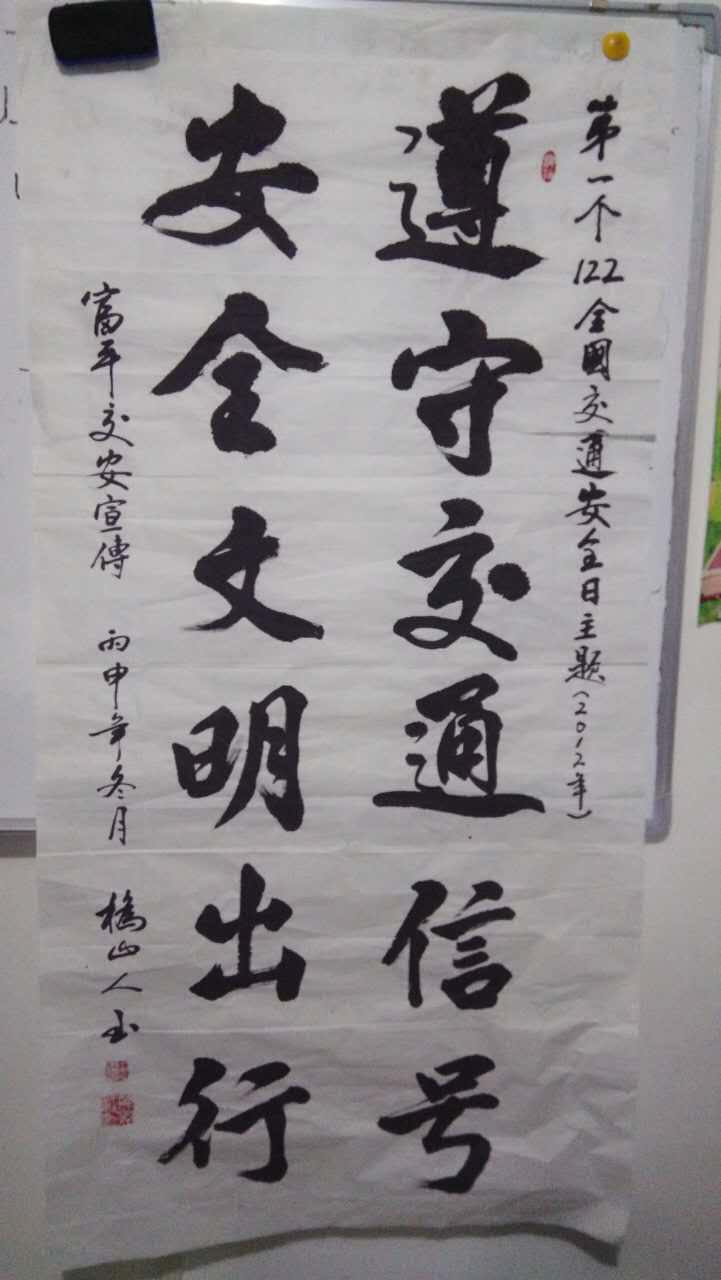 第一个122全國交通安全日主题(2012年)
遵守交通信号
安全文明出行
富平交安宣傳 丙申年冬月 橋山人玉